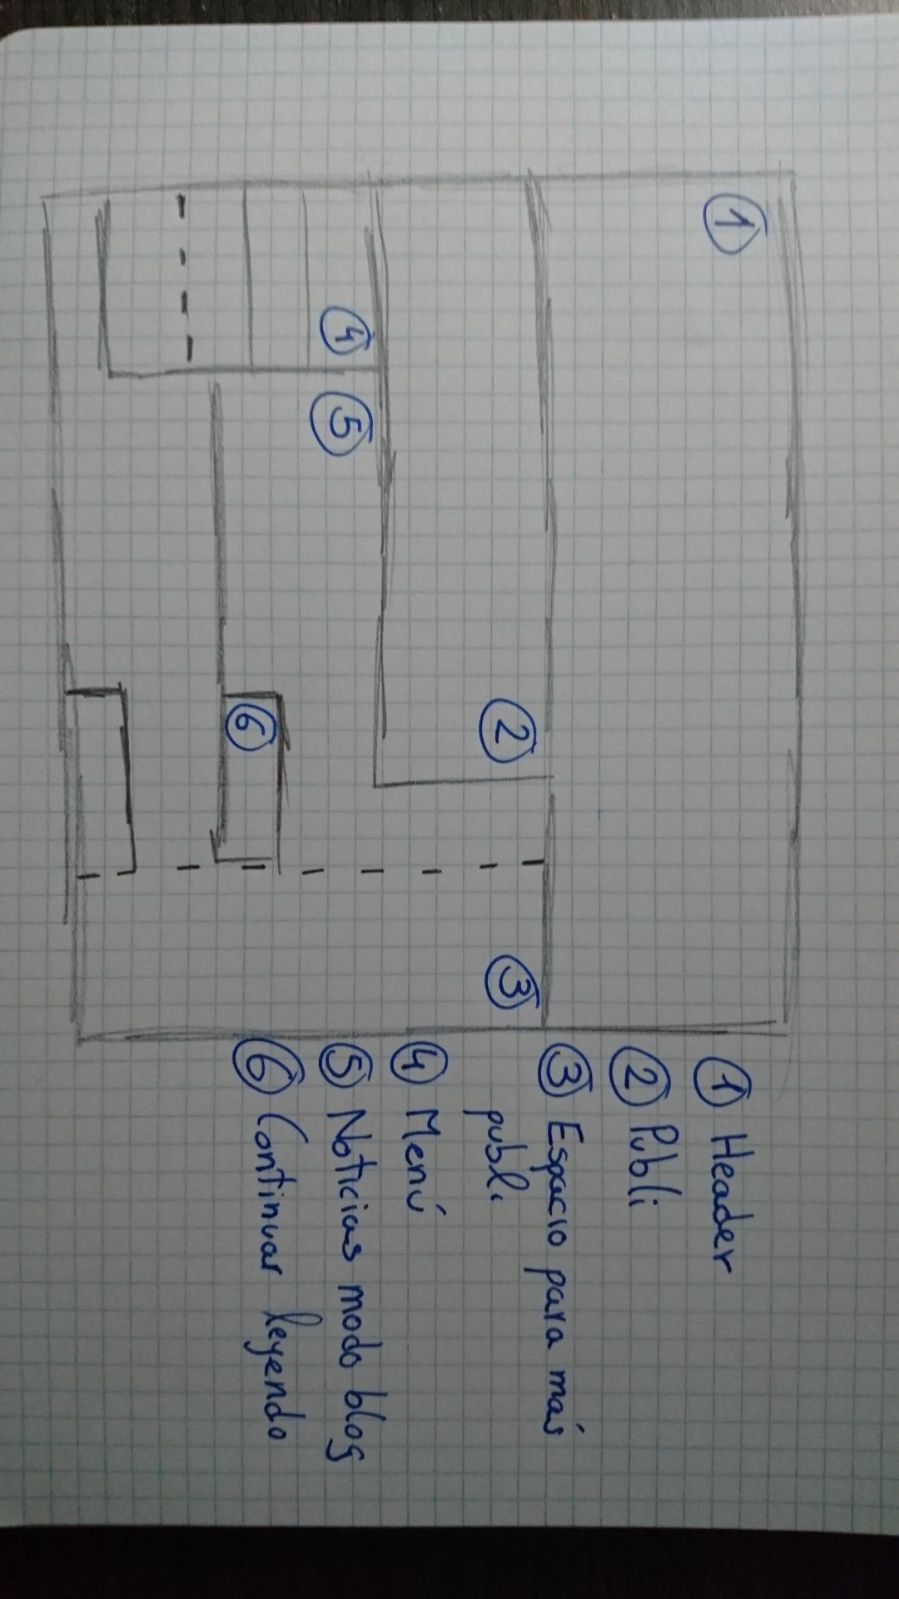 ①
②
③
④
⑤
⑥
① Header
② Publi
③ Espacio para más
publi.
④ Menú
⑤ Noticias modo blog
⑥ Continuar leyendo